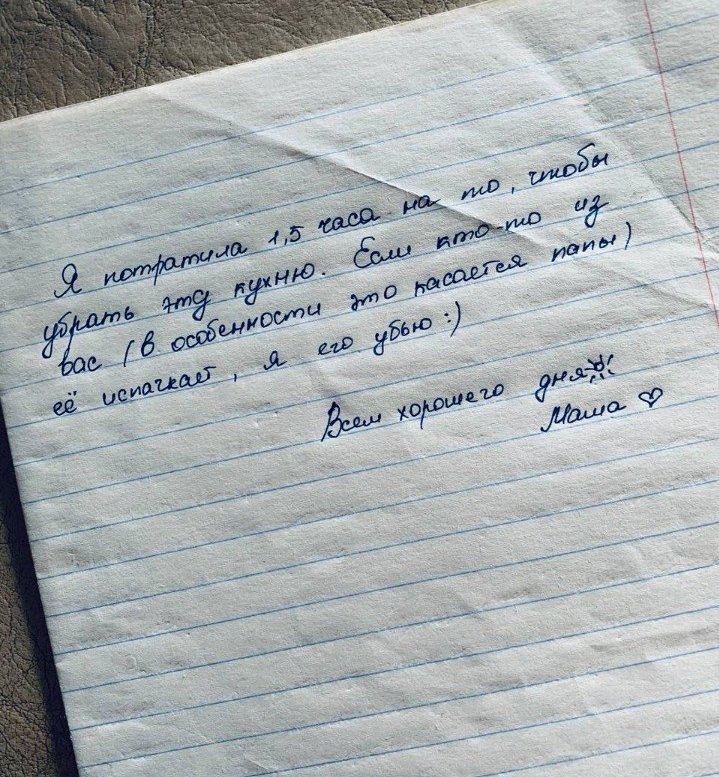 Я потратила 1,5 часа на то, чтобы
убрать эту кухню. Если кто-то из
вас (в особенности это касается папы)
её испачкает, я его убью :)
Всем хорошего дня
Маша ♡